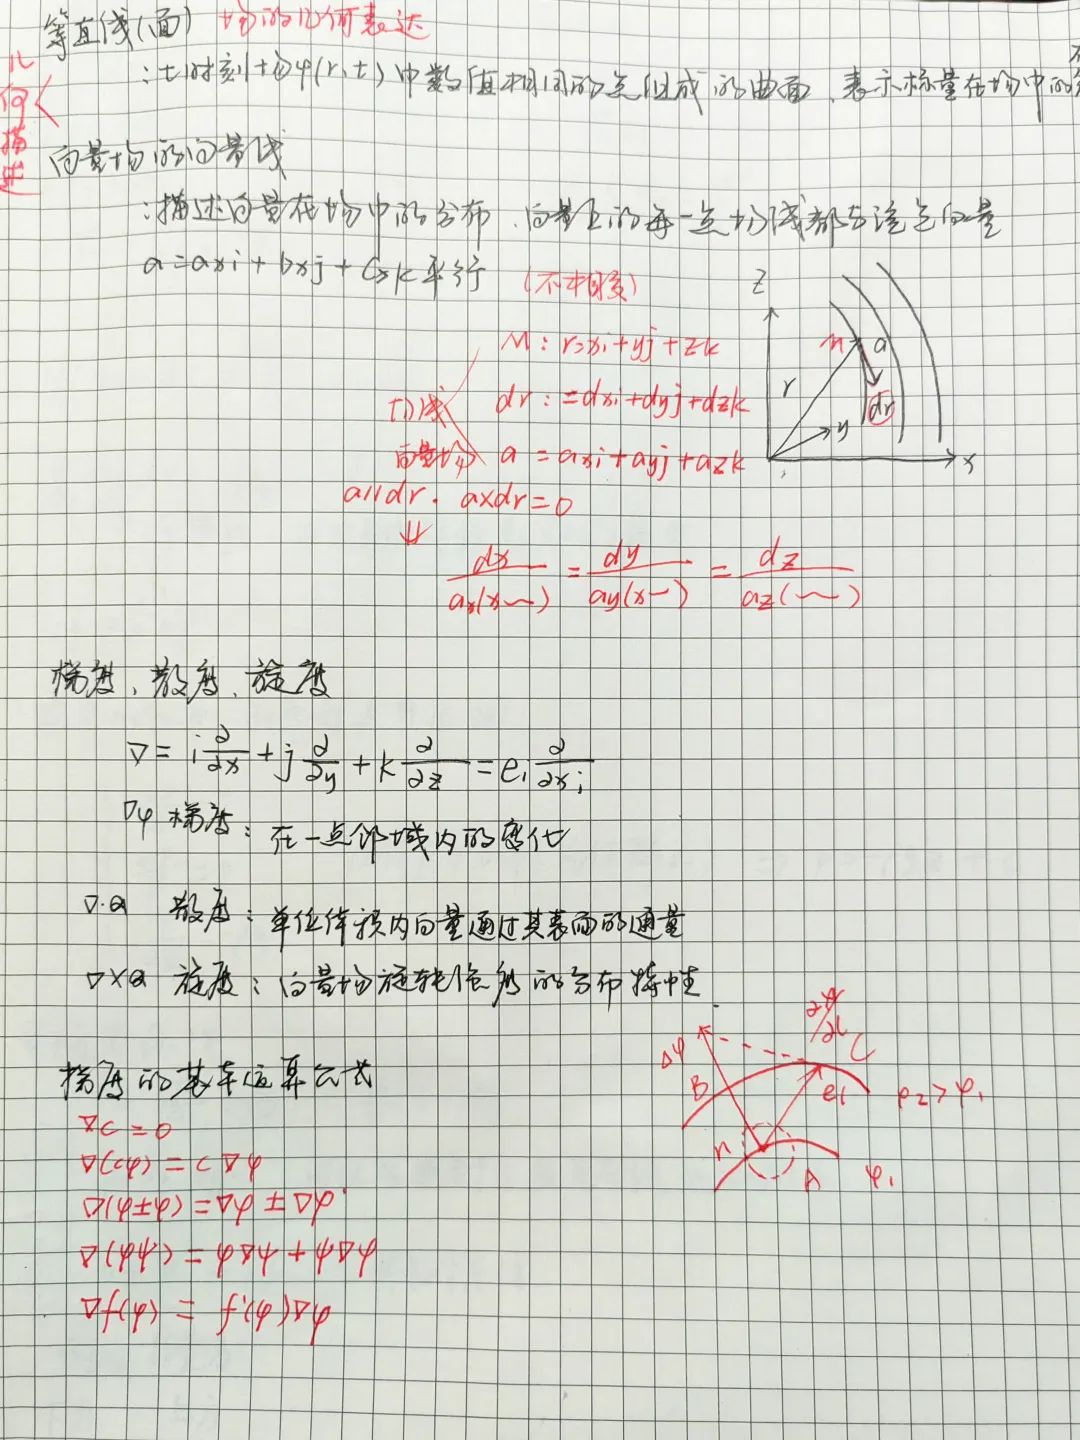 等直线(面) 场的几何表达
几何描述
:t时刻场φ(r,t)中数值相同的点组成的曲面、表示标量在场中的
向量场的向量线
:描述向量在场中的分布、向量上的每一点切线都与该点向量
a=axi+bxj+Cxk平行 (不相交)
M: r=xi+yj+zk
dr:=dxi+dyj+dzk
切线
向量场 a=axi+ayj+azk
a//dr. a×dr=0
⇓
dx/ax(x~) = dy/ay(x~) = dz/az(~)
z
M a
r
dr
y
x
梯度、散度、旋度
∇=i∂/∂x+j∂/∂y+k∂/∂z=ei∂/∂xi
∇φ 梯度:在一点邻域内的变化
∇·a 散度:单位体积内向量通过其表面的通量
∇×a 旋度:向量场旋转的分布特性
梯度的基本运算公式
∇c=0
∇(cφ)=c∇φ
∇(φ±φ)=∇φ±∇φ
∇(φψ)=φ∇ψ+ψ∇φ
∇f(φ)=f'(φ)∇φ
∂φ/∂l
Δφ
C
B
el
φ2>φ1
n
A
φ1